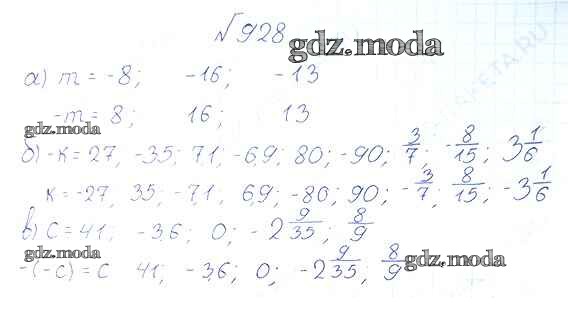 №928
gdz.moda
а) m = -8; -16; -13
-m = 8; 16; 13
gdz.moda
б) -к = 27, -35; 7,1; -6,9; 80; -90; 3/7; -8/15; 3 1/6
к = -27, 35; -7,1; 6,9; -80; 90; -3/7; 8/15; -3 1/6
в) с = 41; -3,6; 0; -2 9/35; 8/9
gdz.moda
-(-с) = с 41; -3,6; 0; -2 9/35; 8/9
gdz.moda